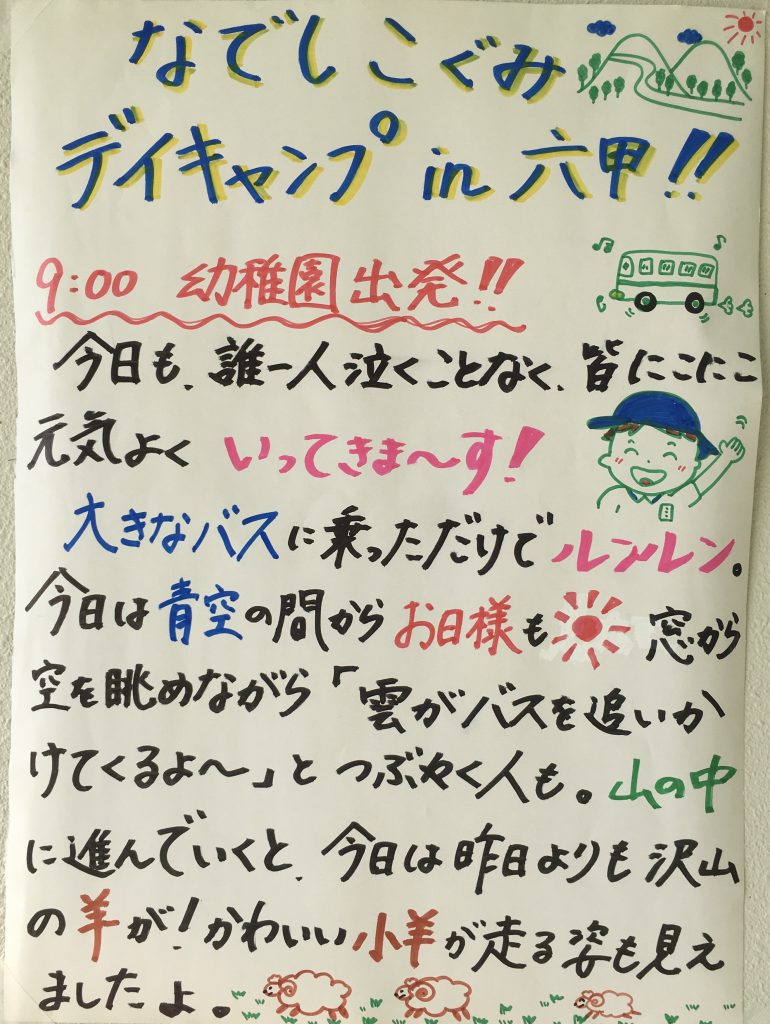 なでしこぐみ
デイキャンプ in 六甲!!
9:00 幼稚園出発!!
今日も、誰一人泣くことなく、皆にこにこ
元気よく いってきま〜す!
大きなバスに乗っただけでルンルン。
今日は青空の間からお日様も 窓から
空を眺めながら「雲がバスを追いか
けてくるよ〜」と つぶやく人も。山の中
に進んでいくと、今日は昨日よりも沢山
の羊が!かわいい小羊が走る姿も見え
ましたよ。